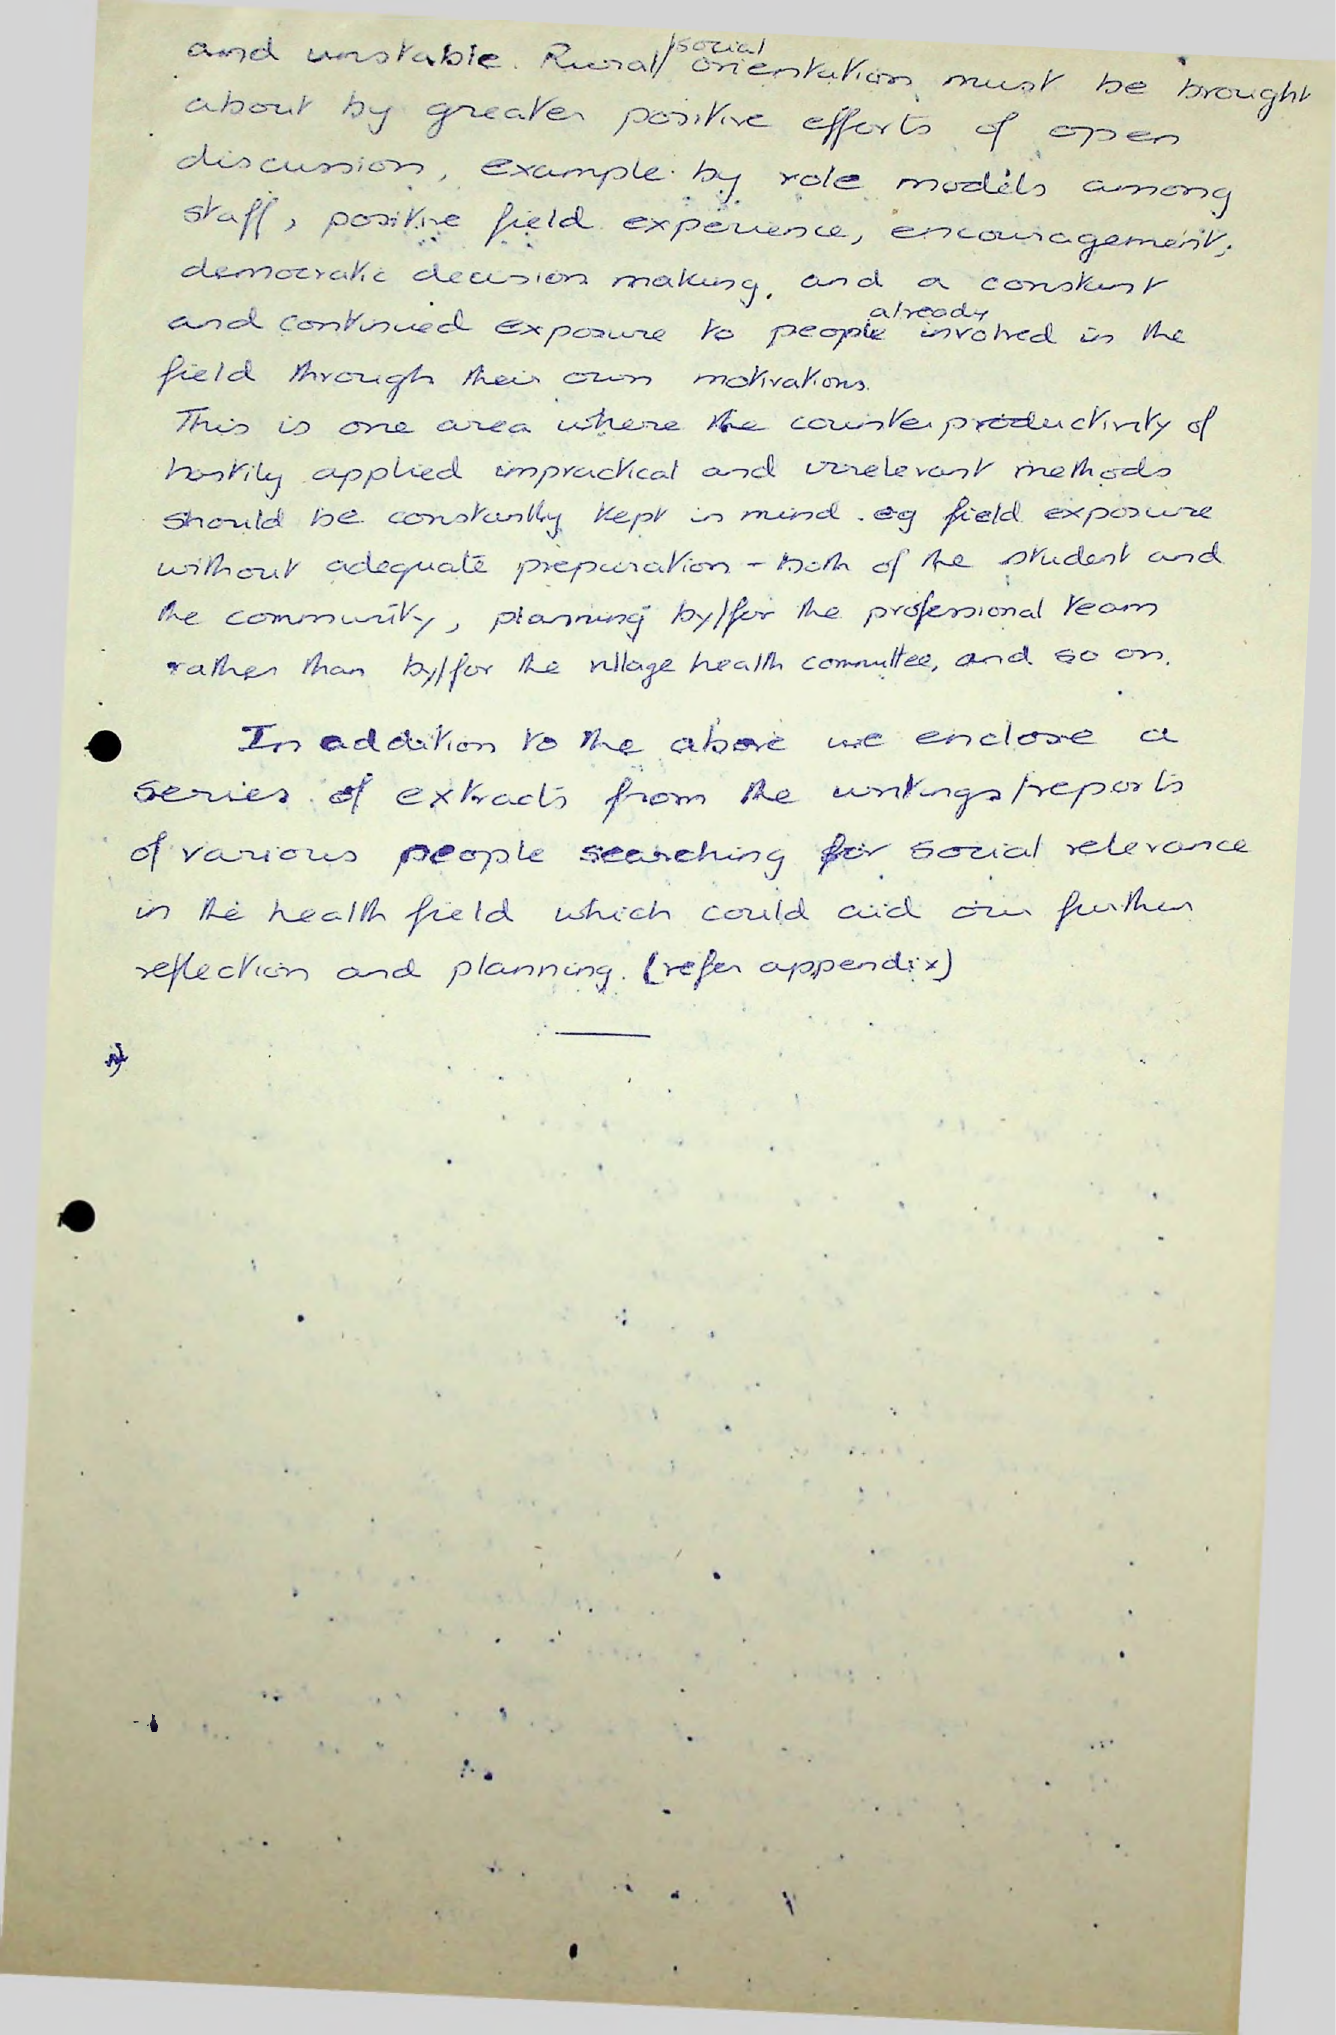 and unstable. Rural/social orientation must be brought
about by greater positive efforts of open
discussion, example by role models among
staff, positive field experience, encouragement,
democratic decision making, and a constant
and continued exposure to people already involved in the
field through their own motivations.
This is one area where the counterproductivity of
hastily applied impractical and irrelevant methods
should be constantly kept in mind. eg field exposure
without adequate preparation - both of the student and
the community, planning by/for the professional team
rather than by/for the village health committee, and so on.
In addition to the above we enclose a
series of extracts from the writings/reports
of various people searching for social relevance
in the health field which could aid our further
reflection and planning. (refer appendix)